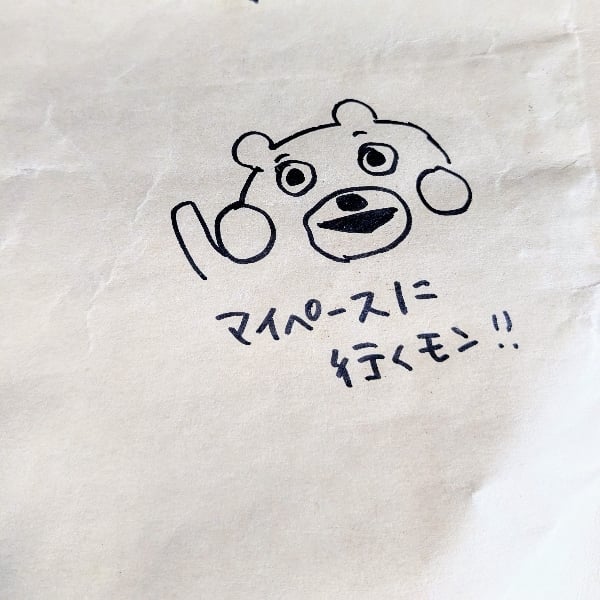 マイペースに
行くモン!!